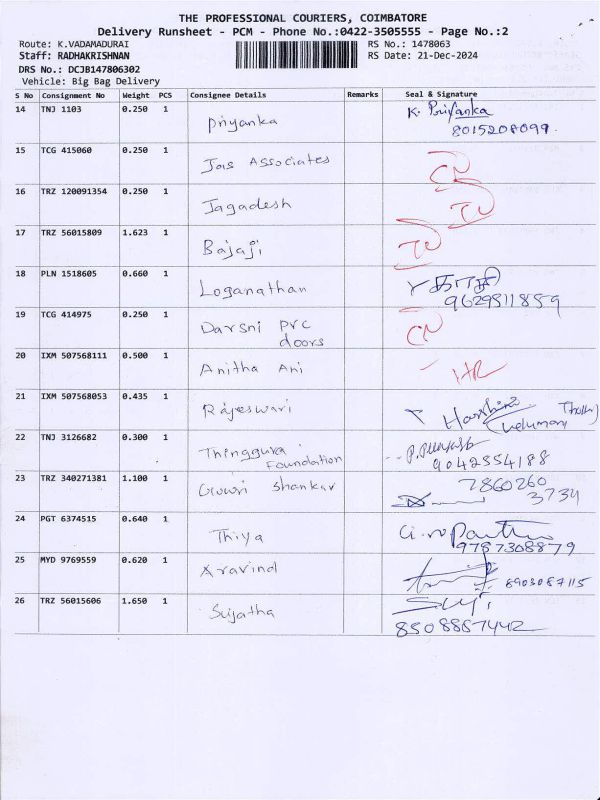 THE PROFESSIONAL COURIERS, COIMBATORE
Delivery Runsheet - PCM - Phone No.:0422-3505555 - Page No.:2
Route: K.VADAMADURAI RS No.: 1478063
Staff: RADHAKRISHNAN RS Date: 21-Dec-2024
DRS No.: DCJB147806302
Vehicle: Big Bag Delivery
S No Consignment No Weight PCS Consignee Details Remarks Seal & Signature
14 TNJ 1103 0.250 1 Priyanka K. Priyanka
8015208099
15 TCG 415060 0.250 1 Jas Associates
16 TRZ 120091354 0.250 1 Jagadesh
17 TRZ 56015809 1.623 1 Bajaji
18 PLN 1518605 0.660 1 Loganathan
9629511859
19 TCG 414975 0.250 1 Darsni pvc
doors
20 IXM 507568111 0.500 1 Anitha Ani
21 IXM 507568053 0.435 1 Rajeswari
22 TNJ 3126682 0.300 1 Thingguva
Foundation 9042554188
23 TRZ 340271381 1.100 1 Gowri Shankar 7860260
3734
24 PGT 6374515 0.640 1 Thiya
9787308879
25 MYD 9769559 0.620 1 Aravind 8903087115
26 TRZ 56015606 1.650 1 Sujatha Suji
8508887442